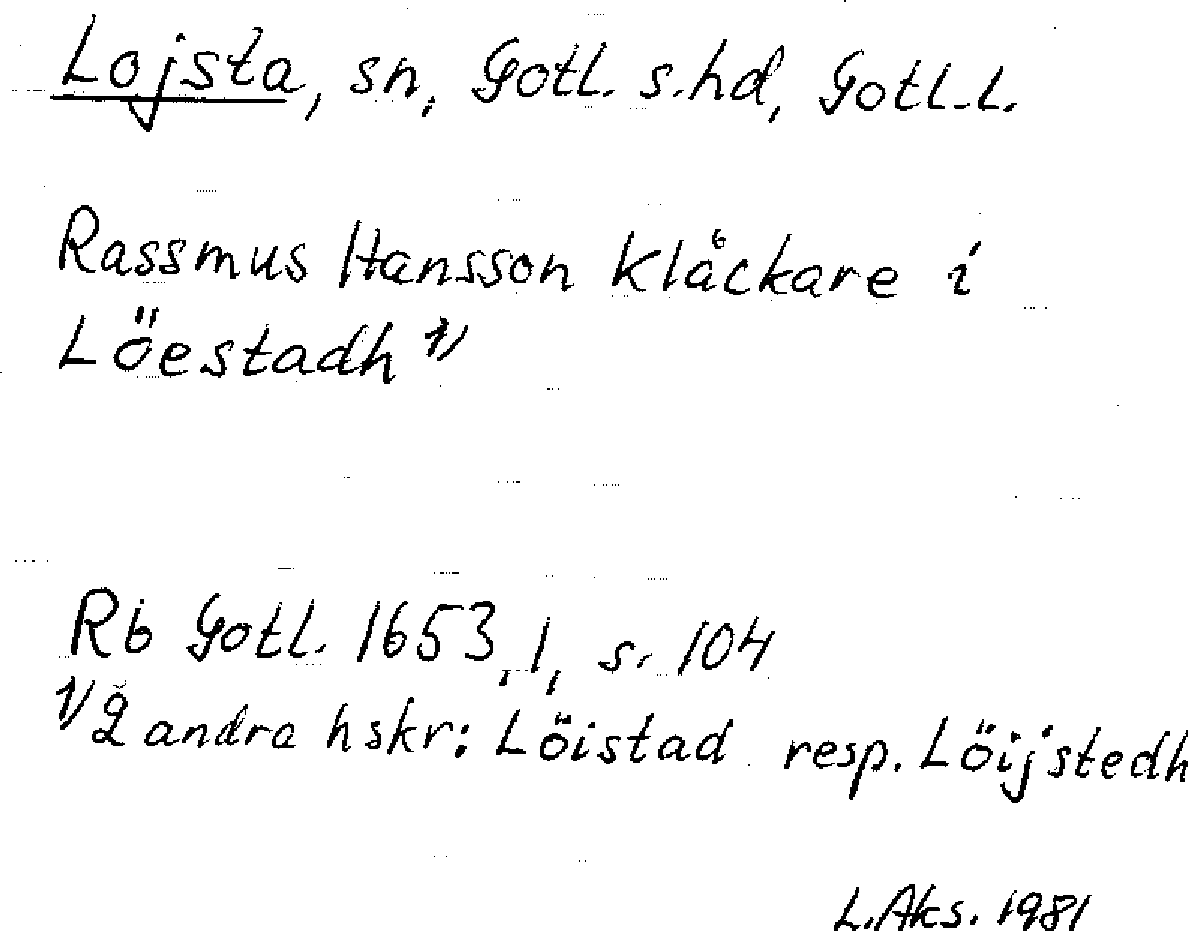 Lojsta, sn, Gotl. s.hd, Gotl.l.
Rassmus Hansson klåckare i
Löestadh 1)
Rb Gotl. 1653, 1, s. 104
1) 2 andra hskr: Löistad resp. Löijstedh
L.Aks. 1981